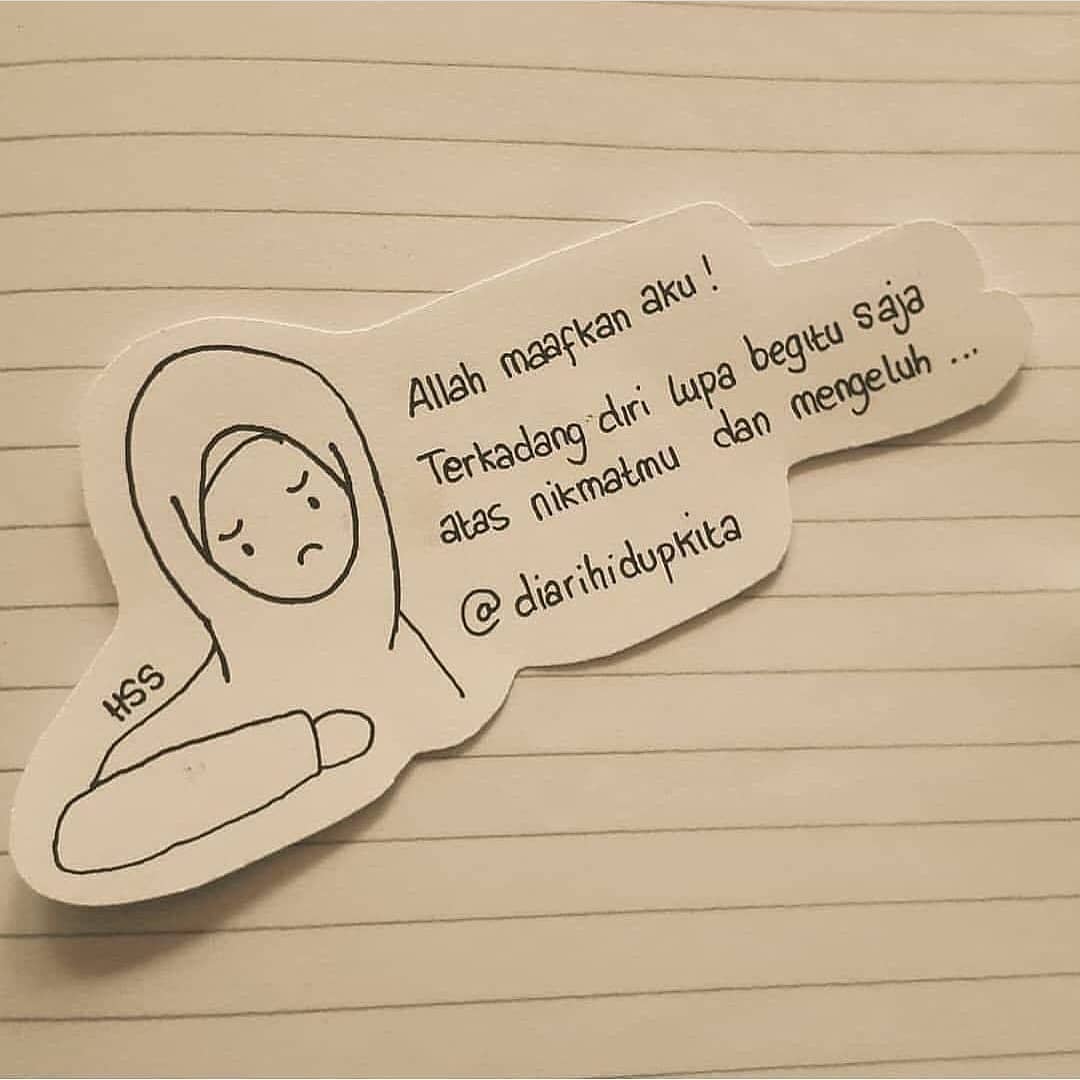 Allah maafkan aku !
Terkadang diri lupa begitu saja
atas nikmatmu dan mengeluh ...
@diarihidupkita
HSS